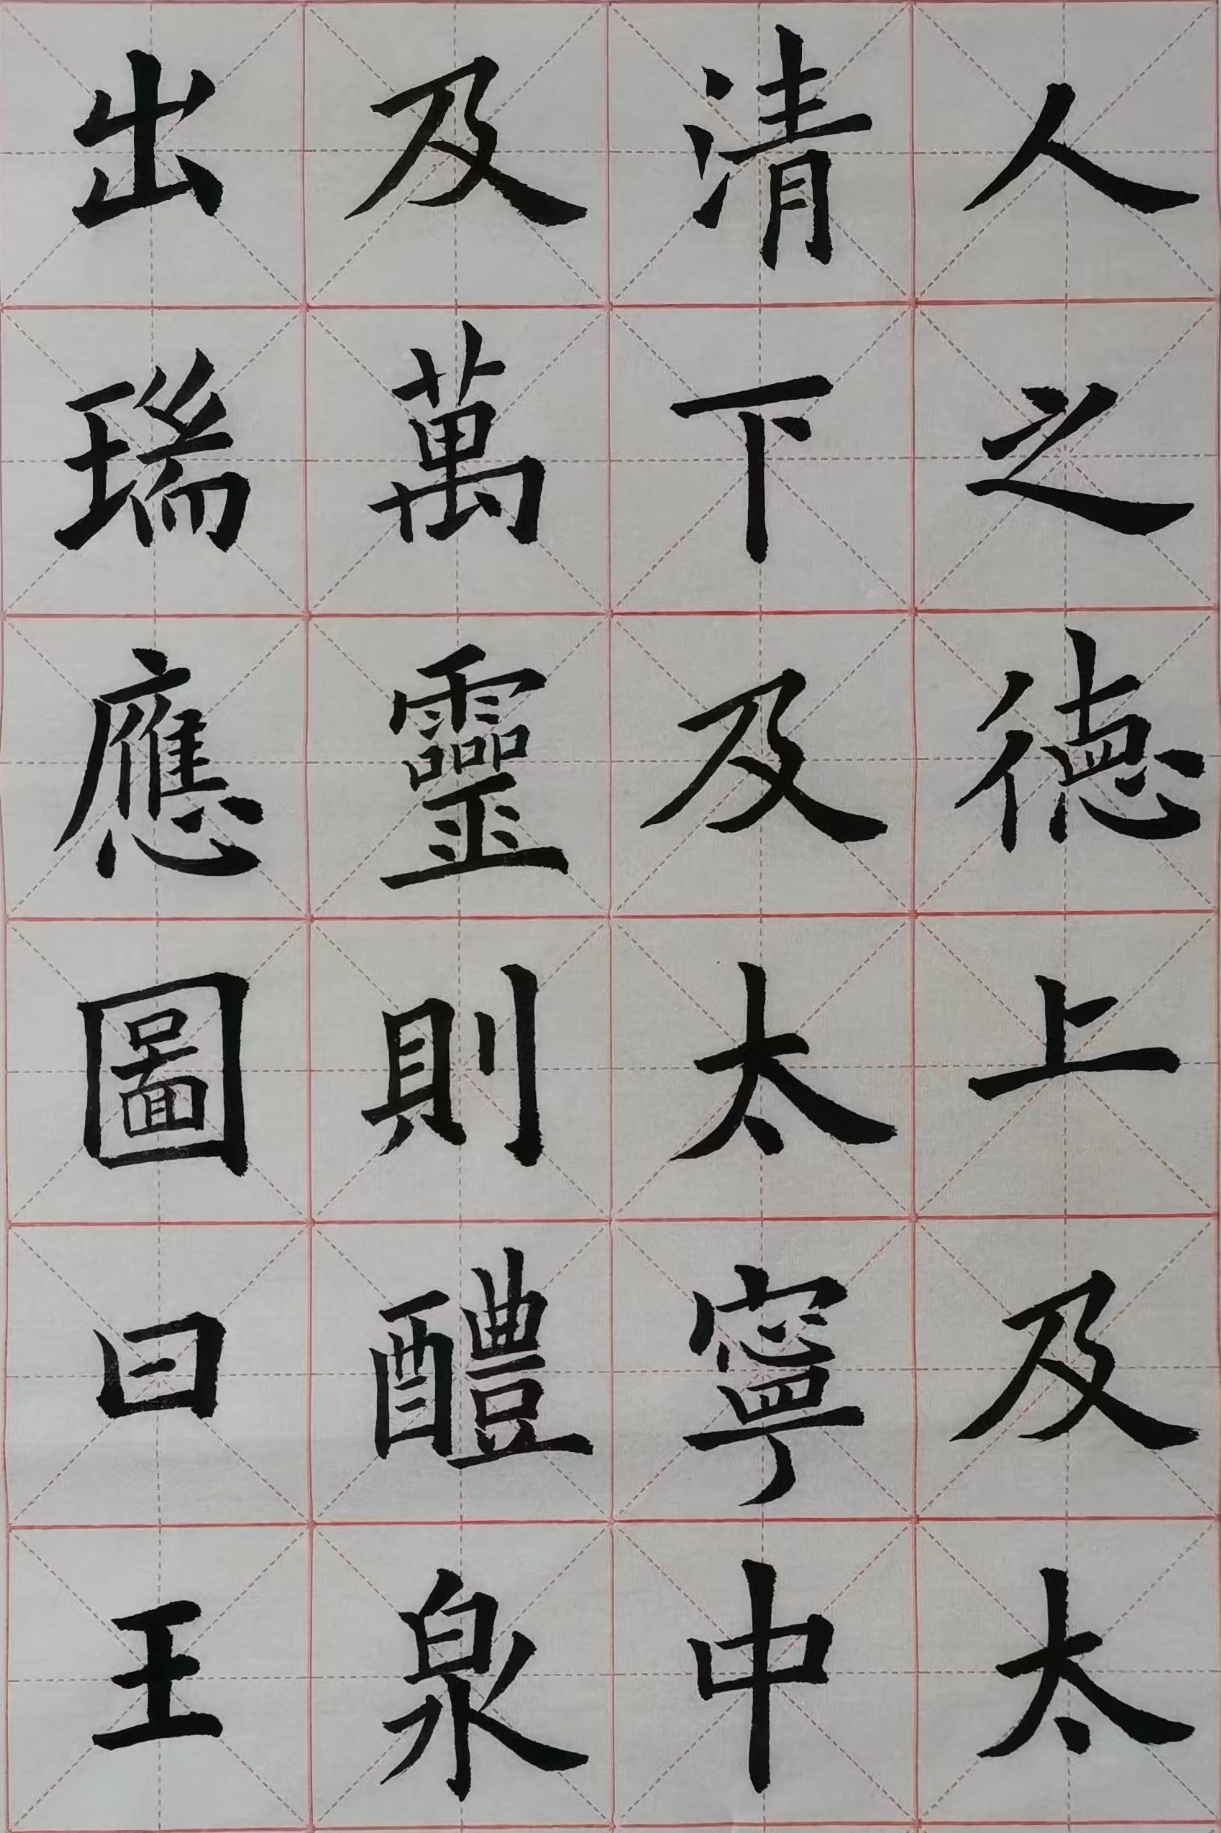 人之德上及太
清下及太寧中
及萬靈則醴泉
出瑞應圖曰王